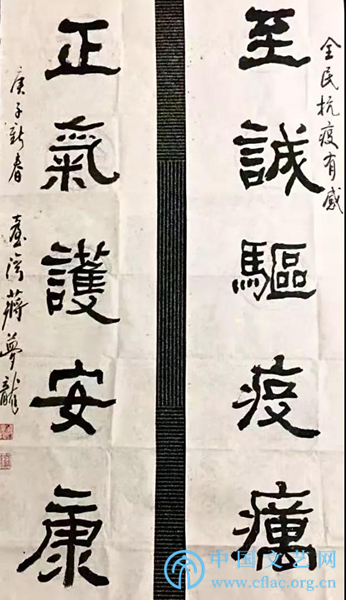 全民抗疫有感
至誠驅疫癘
正氣護安康
庚子新春
蔣夢龍
中国文艺网
www.cflac.org.cn